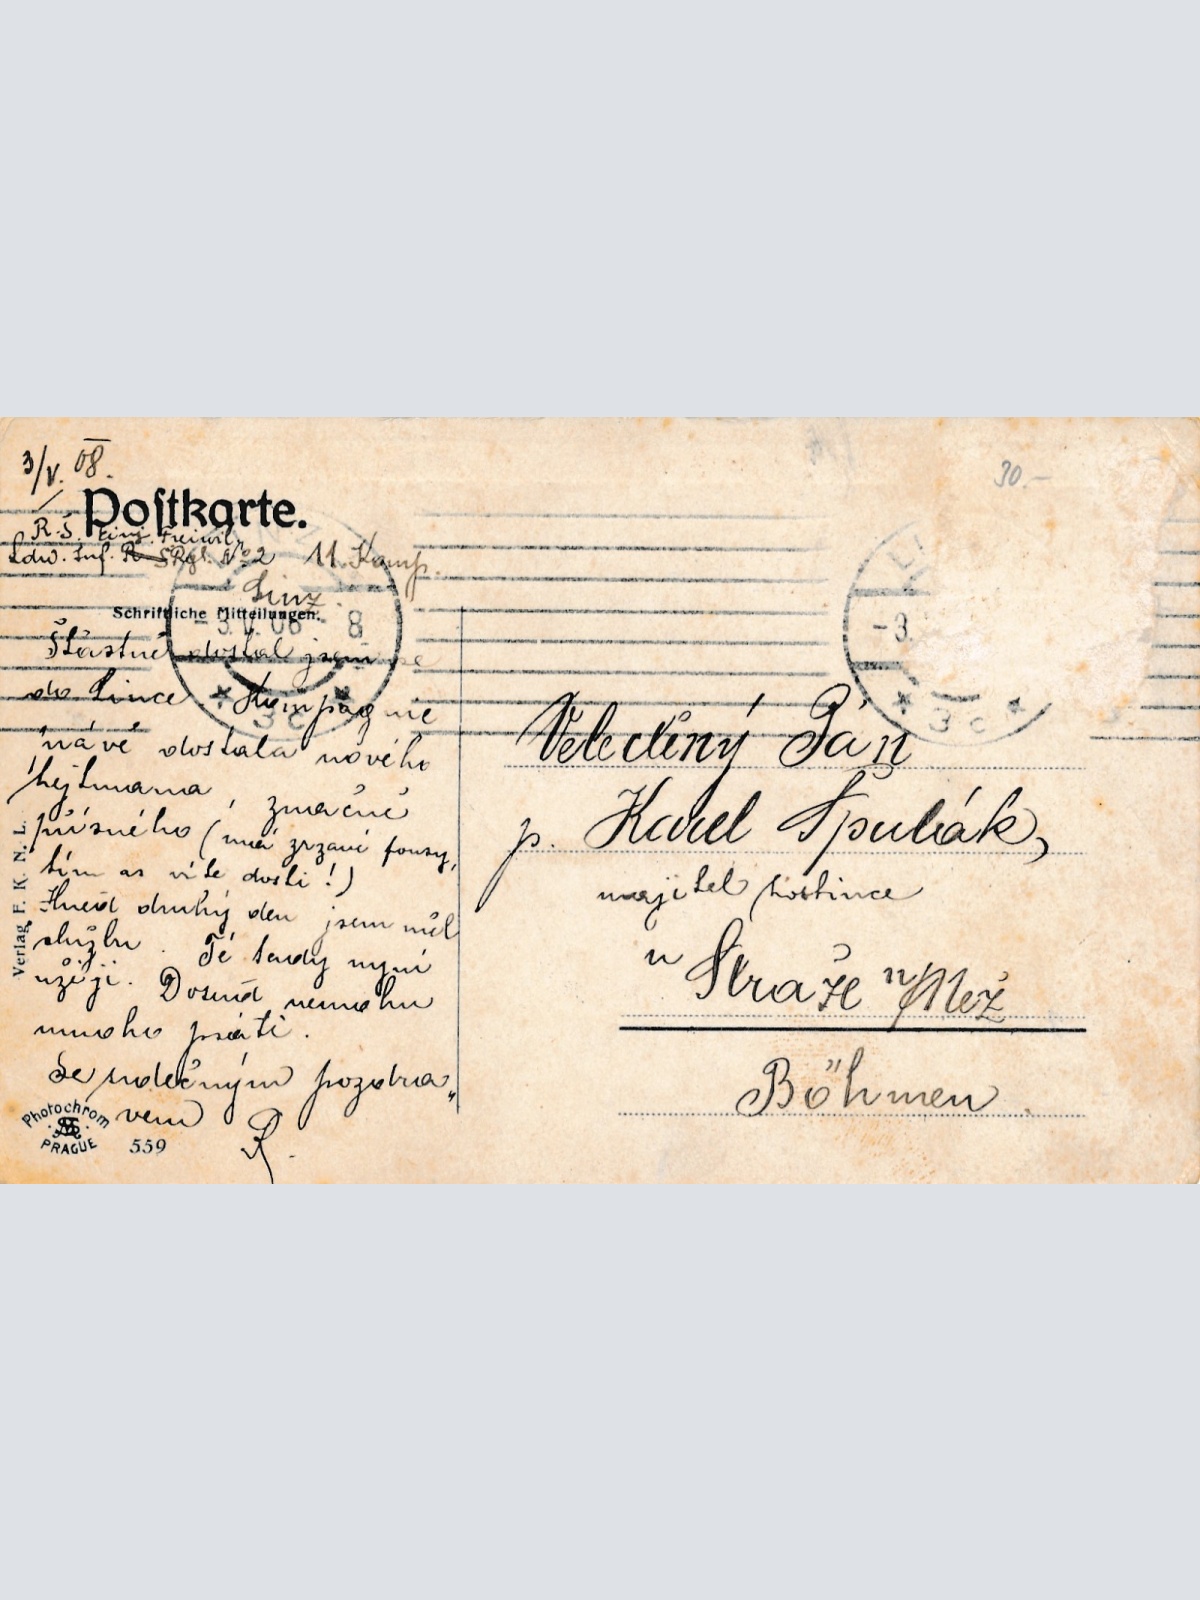 3/V. 08.
Postkarte.
R.S. Einj. Freiwil.
Ldw. Inf. Rgt. No 2 11. Komp.
Linz.
Schriftliche Mitteilungen.
-3. V. 08 - 8
3 c
Šťastně dostal jsem se
do Lince. Kompagnie
nává dostala nového
hejtmana, značně
přísného (má zrzavé fousy,
tím as víte dosti!)
Hned druhý den jsem měl
službu. Té tendy nyní
užiji. Dosud nemohu
mnoho psáti.
Se srdečným pozdra„
vem
R.
Velectěný Pán
p. Karel Špulák,
majitel hostince
v Straže n/Než
Böhmen.
30.-
-3.
3 c
Verlag F. K. N. L.
Photochrom
PRAGUE
559